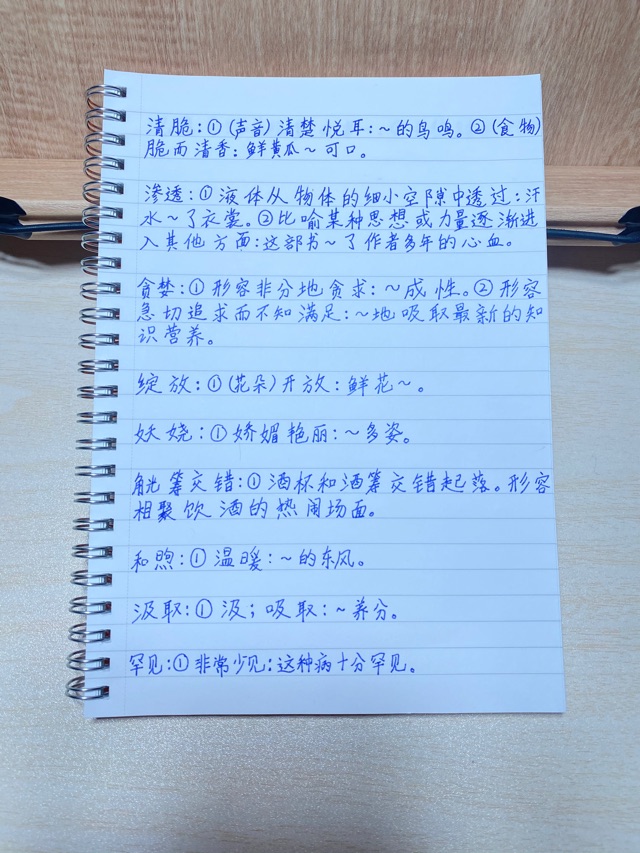 清脆:①(声音)清楚悦耳:~的鸟鸣。②(食物)
脆而清香:鲜黄瓜~可口。
渗透:①液体从物体的细小空隙中透过:汗
水~了衣裳。②比喻某种思想或力量逐渐进
入其他方面:这部书~了作者多年的心血。
贪婪:①形容非分地贪求:~成性。②形容
急切追求而不知满足:~地吸取最新的知
识营养。
绽放:①(花朵)开放:鲜花~。
妖娆:①娇媚艳丽:~多姿。
觥筹交错:①酒杯和酒筹交错起落。形容
相聚饮酒的热闹场面。
和煦:①温暖:~的东风。
汲取:①汲;吸取:~养分。
罕见:①非常少见:这种病十分罕见。